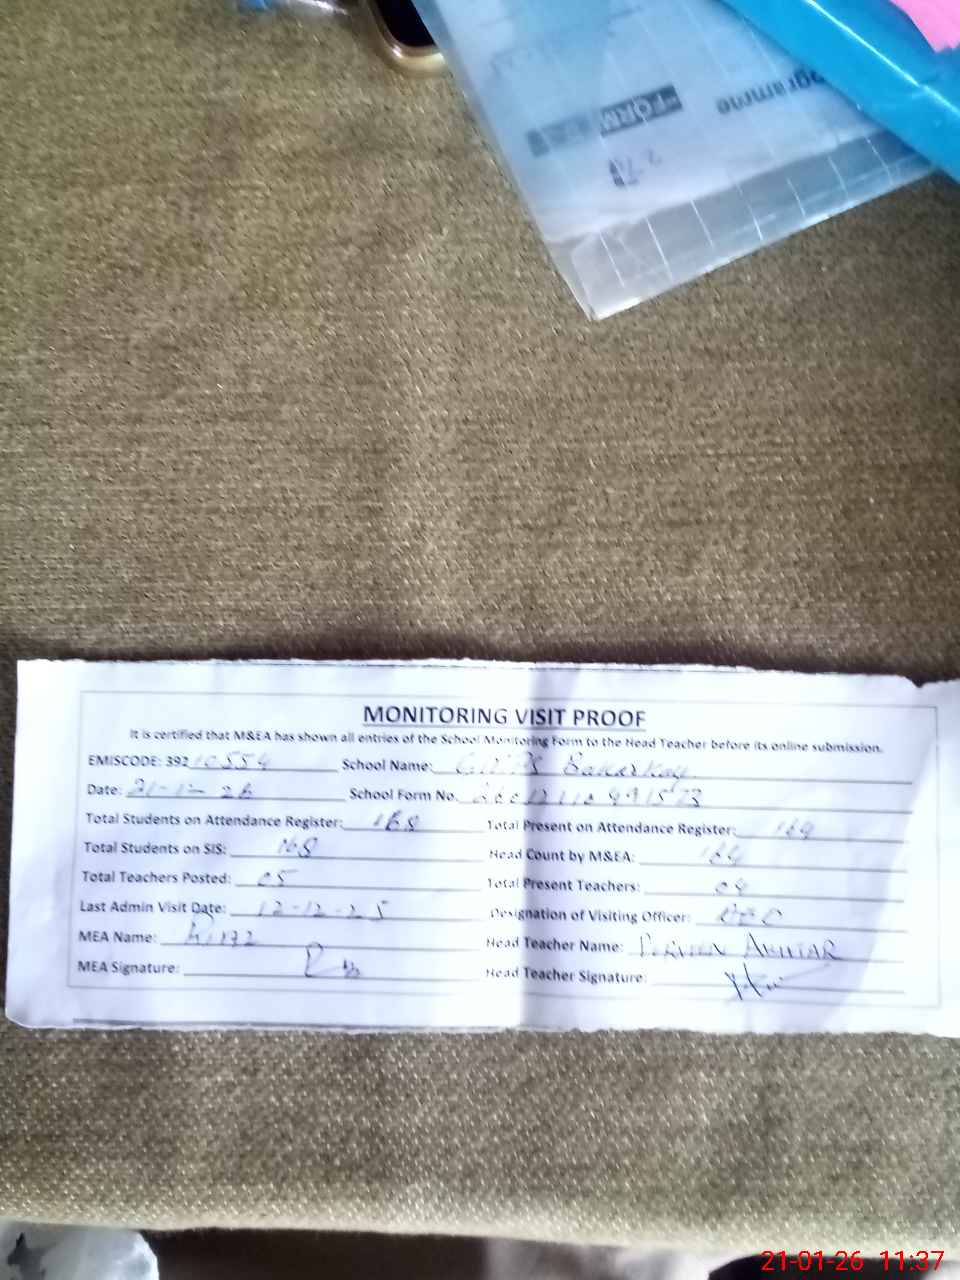 ogramme
FORM
MONITORING VISIT PROOF
It is certified that M&EA has shown all entries of the School Monitoring Form to the Head Teacher before its online submission.
EMISCODE: 39210554 School Name:
Date: 21-1-26 School Form No.
Total Students on Attendance Register: 168 Total Present on Attendance Register: 164
Total Students on SIS: 168 Head Count by M&EA: 164
Total Teachers Posted: 05 Total Present Teachers: 04
Last Admin Visit Date: 12-12-25 Designation of Visiting Officer:
MEA Name: Head Teacher Name: AKHTAR
MEA Signature: Head Teacher Signature:
21-01-26 11:37